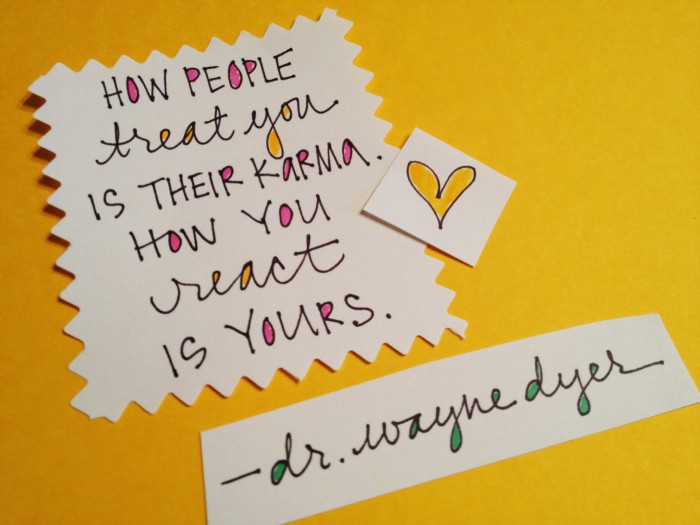 HOW PEOPLE
treat you
IS THEIR KARMA.
HOW YOU
react
IS YOURS.
—dr. wayne dyer